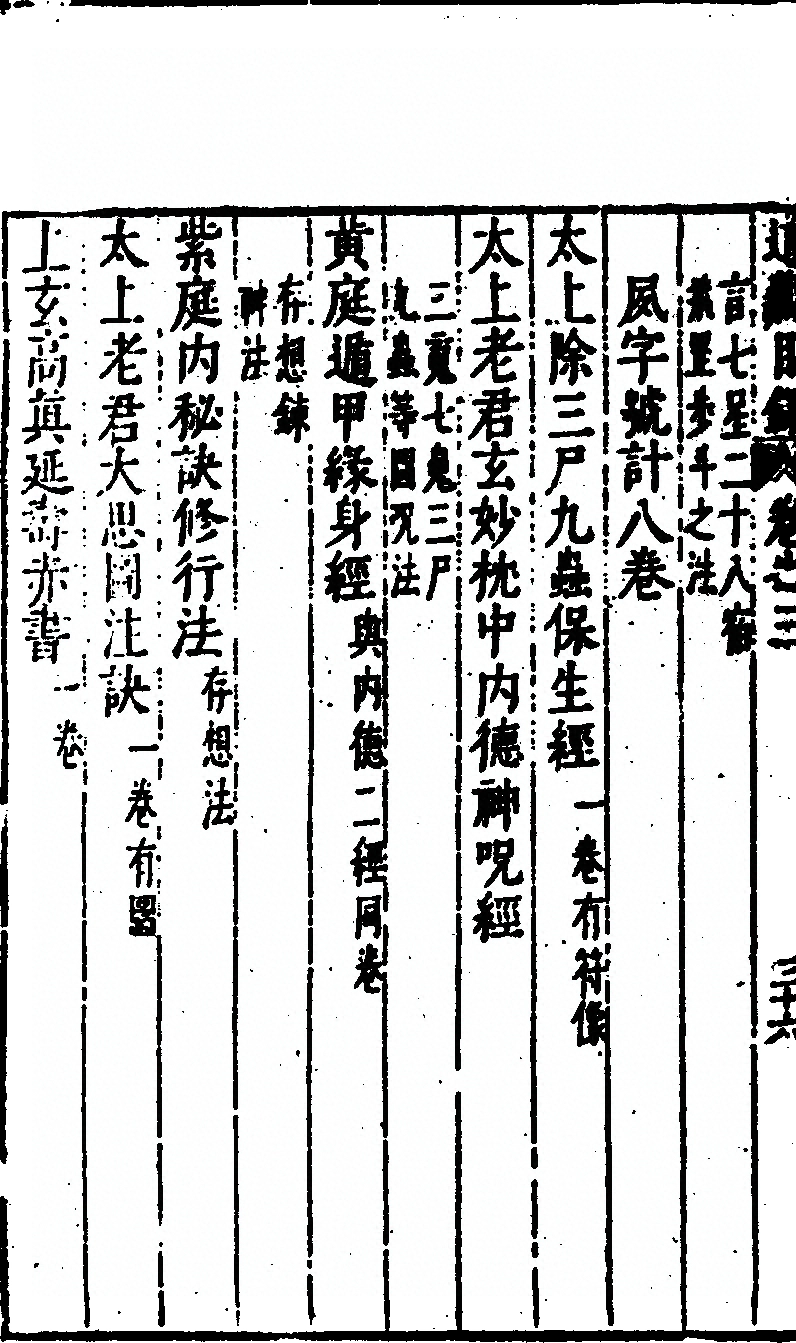 道藏目錄卷之三 三十六
言七星二十八宿
罡步斗之法
夙字號計八卷
太上除三尸九蟲保生經 一卷有符像
太上老君玄妙枕中内德神呪經
三魂七鬼三尸
九蟲等圖呪法
黄庭遁甲緣身經 與内德二經同卷
存想鍊
神法
紫庭内秘訣修行法 存想法
太上老君大思圖注訣 一卷有圖
上玄高真延壽赤書 一卷